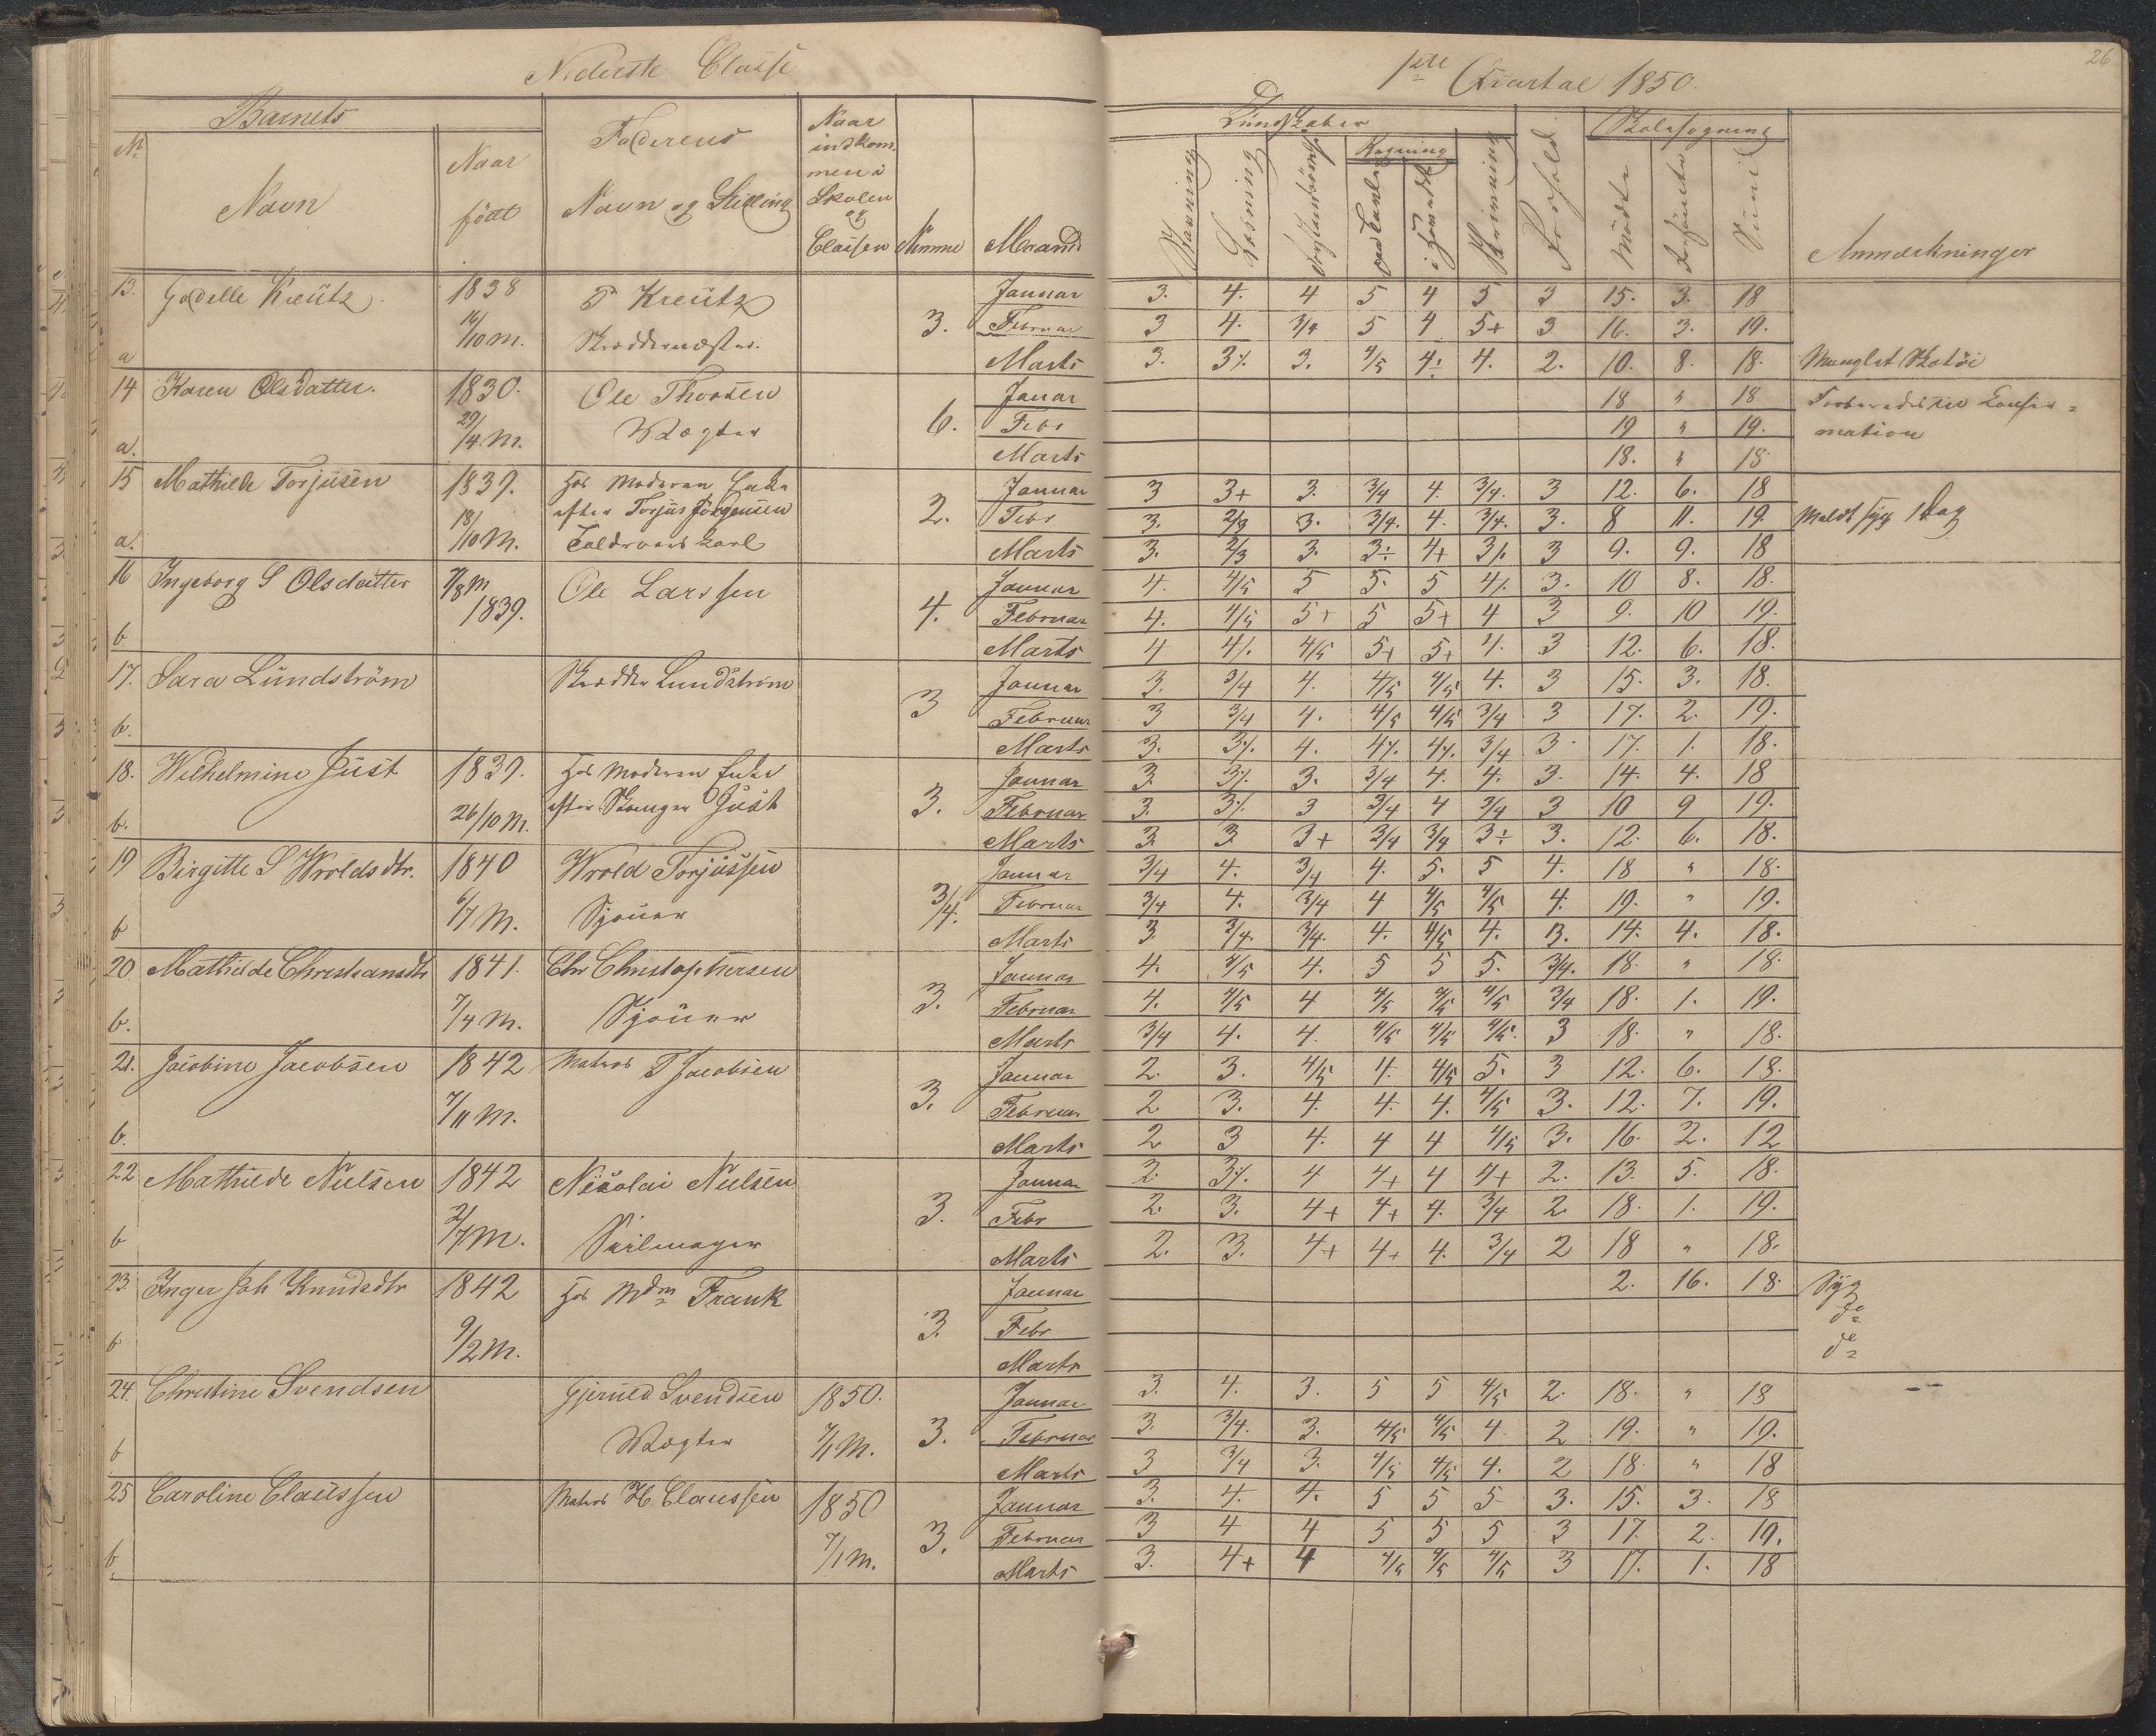 Nederste Classe
1ste Qvartal 1850.
26
Barnets
Nr
Navn
Naar
födt
Faderens
Navn og Stilling
Naar
indkom-
men i
Skolen
og
Classen
Nemme
Maaned
Kundskaber
Regning
Læsning
Skrivning
Forhold
Skolesögning
Mödte
Forsömte
Anmærkninger
13. Godelle Kreütz. 1838 P Kreütz 3. Januar 3. 4. 4 5 4 5 3 15. 3. 18
16/10 M. Skreddermester. Februar 3 4. 3/4 5 4 5+ 3 16. 3. 19.
a Marts 3. 3⁒ 3. 4/5 4÷ 4. 2. 10. 8. 18. Manglet Skotöi
14 Karen Olsdatter. 1830. Ole Thorsen 6. Januar 18 " 18 Forberedes til Confir=
29/4 M. Vægter Febr 19 " 19. mation
a. Marts 18. " 18
15 Mathilde Torjüsen 1839. Hos Moderen Enke 2. Januar 3 3+ 3. 3/4 4. 3/4. 3 12. 6. 18
18/10 M. efter Torjus Jörgensen Febr 3. 2/3 3. 3/4. 4. 3/4. 3. 8 11. 19. Meldt syg 1 Dag
a. Marts 3. 2/3 3. 3÷ 4+ 3⁒ 3 9. 9. 18
16 Ingeborg S Olsdatter 7/8 M Ole Larssen 4. Januar 4. 4/5 5 5. 5 4⁒ 3. 10 8. 18.
1839. Februar 4. 4/5 5+ 5 5+ 4 3 9. 10 19.
b Marts 4 4⁒ 4/5 5+ 5+ 4. 3 12. 6. 18.
17. Sara Lündström Skrædder Lundström 3 Januar 3. 3/4 4. 4/5 4/5 4. 3 15. 3. 18.
Februar 3 3/4 4. 4/5 4/5 3/4 3 17. 2. 19.
b. Marts 3. 3⁒ 4. 4⁒ 4⁒ 3/4 3 17. 1. 18.
18. Wilhelmine Just 1839. Hos Moderen Enke 3. Januar 3. 3⁒ 3. 3/4 4. 4. 3. 14. 4. 18
26/10 M. efter Just Februar 3. 3⁒ 3 3/4 4 3/4 3 10 9 19.
b. Marts 3. 3 3+ 3/4 3/4 3÷ 3. 12. 6. 18.
19 Birgitte S Wroldsdtr. 1840 Wrold Torjüssen 3/4. Januar 3/4 4. 3/4 4. 5. 5 4. 18 " 18.
6/7 M. Sjouer Februar 3/4 4. 3/4 4 4/5 4/5 4. 19. " 19.
b Marts 3 3/4. 3/4. 4. 4/5 4. 3. 14. 4. 18.
20. Mathilde Christiansdtr 1841. Chr Christophersen 3. Januar 4. 4/5 4. 5 5 5. 3/4. 18. " 18.
7/4 M. Sjouer Februar 4. 4/5 4 4/5 4/5 4/5 3/4 18. 1. 19.
b. Marts 3/4 4. 4. 4/5 4/5 4/5. 3 18. " 18.
21. Jacobine Jacobsen 1842 Matros T Jacobsen 3. Januar 2. 3. 4/5 4. 4/5 5. 3 12. 6. 18.
7/11 M. Februar 2 3. 4. 4. 4. 4/5 3. 12. 7. 19.
b. Marts 2 3 4. 4 4 4/5 3. 16. 2. 12
22 Mathilde Nielsen 1842 Nicolai Nielsen 3. Januar 2. 3⁒ 4 4+ 4 4+ 2. 13. 5. 18.
2/7 M. Seilmager Febr 2. 3. 4+ 4+ 4. 3/4 2 18. 1. 19.
b Marts 2. 3. 4+ 4+ 4. 3/4 2 18 " 18.
23. Inger Joh Knudsdtr 1842 Hos Mdm Frank 3. Januar 2. 16. 18. Syg
9/2 M. Febr do
b Marts do
24. Christine Svendsen Gjeruld Svendsen 1850. 3. Januar 3. 4. 3. 5 5 4/5 2. 18. " 18 --
Vægter 7/1 M. Februar 3. 3/4. 3. 4/5 4/5 4 2 19. " 19.
b Marts 3 3/4 3. 4/5 4/5 4. 2 18. " 18
25 Caroline Claüssen Matros H Claussen 1850 3. Januar 3. 4. 4. 5 5 5 3. 15. 3. 18
7/1 M. Februar 3 4 4 5 5 5 3 17. 2. 19.
b. Marts 3. 4+ 4 4/5 4/5 4/5 3 17. 1. 18